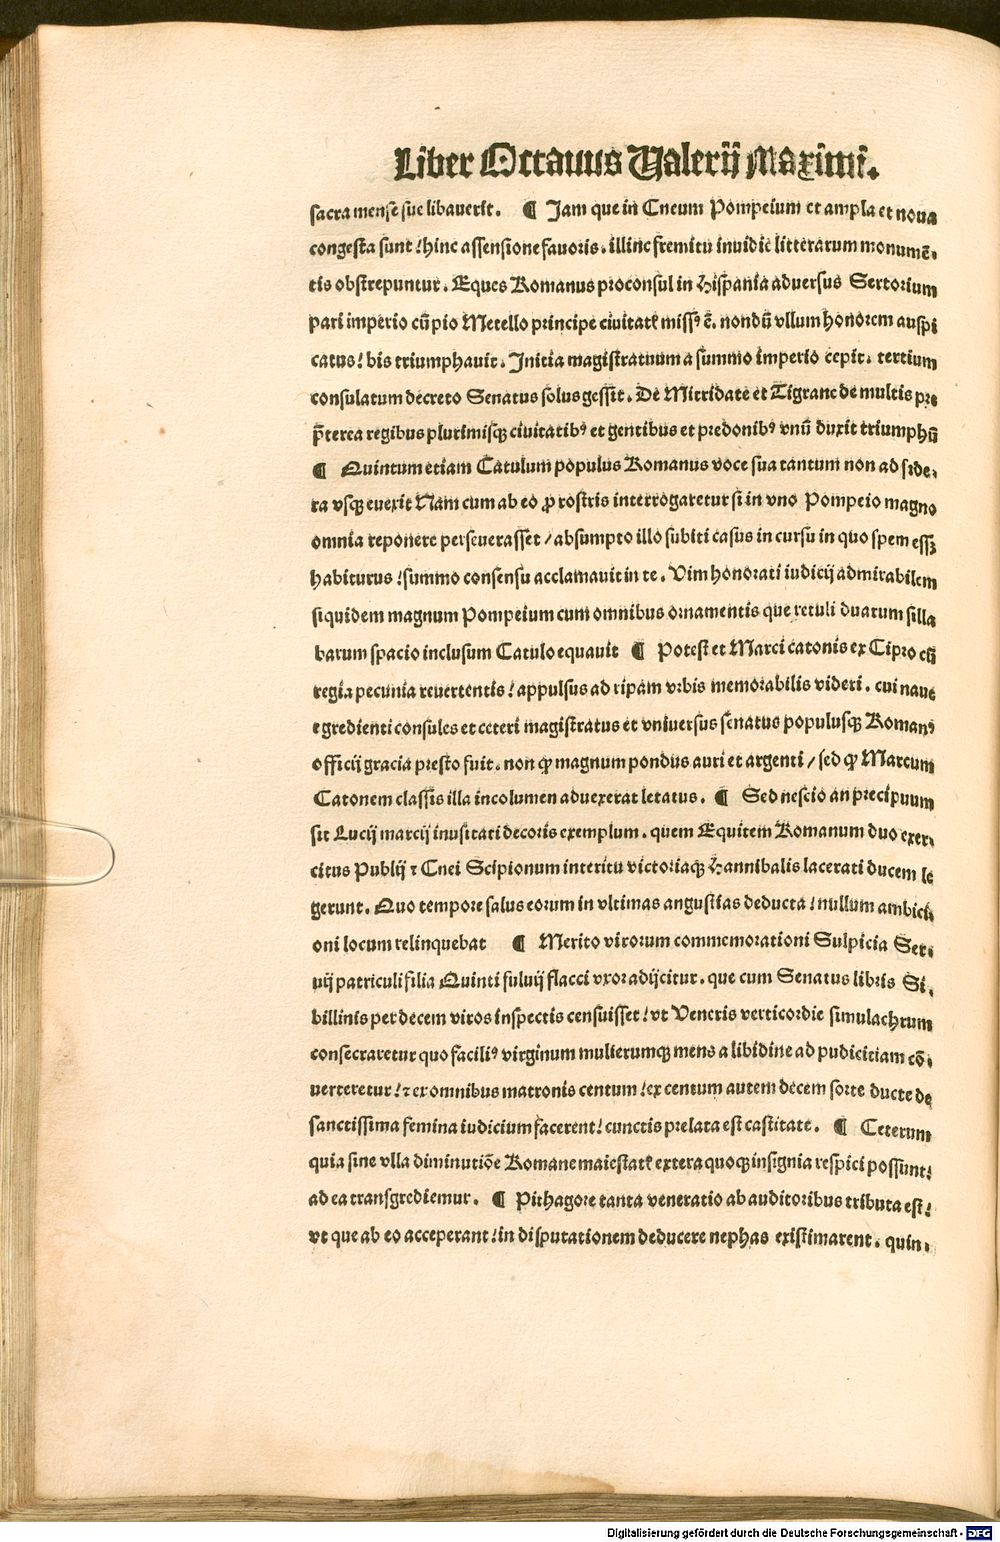 Liber Octauus Ualerij Maximi.
sacra mense sue libauerit. ¶ Jam que in Cneum Pompeium et ampla et noua
congesta sunt! hinc assensione fauoris. illinc fremitu inuidie litterarum monumē.
tis obstrepuntur. Eques Romanus proconsul in Hispania aduersus Sertorium
pari imperio cū pio Metello principe ciuitatꝭ missꝰ ē. nondū vllum honorem auspi
catus! bis triumphauit. Jnicia magistratuum a summo imperio cepit. tertium
consulatum decreto Senatus solus gessit. De Mitridate et Tigrane de multis pre
p̄terea regibus plurimisqꝫ ciuitatibꝰ et gentibus et predonibꝰ vnū duxit triumphū
¶ Quintum etiam Catulum populus Romanus voce sua tantum non ad side.
ra vsqꝫ euexit Nam cum ab eo ꝓ rostris interrogaretur si in vno Pompeio magno
omnia reponere perseuerasset / absumpto illo subiti casus in cursu in quo spem essꝫ
habiturus! summo consensu acclamauit in te. Vim honorati iudicij admirabilem
siquidem magnum Pompeium cum omnibus ornamentis que retuli duarum silla
barum spacio inclusum Catulo equauit ¶ Potest et Marci catonis ex Cipro cū
regia pecunia reuertentis! appulsus ad ripam vrbis memorabilis videri. cui naue
egredienti consules et ceteri magistratus et vniuersus senatus populusqꝫ Romanꝰ
officij gracia presto fuit. non ꝙ magnum pondus auri et argenti / sed ꝙ Marcum
Catonem classis illa incolumen aduexerat letatus. ¶ Sed nescio an precipuum
sit Lucij marcij inusitati decoris exemplum. quem Equitem Romanum duo exer.
citus Publij ⁊ Cnei Scipionum interitu victoriaqꝫ Hannibalis lacerati ducem le
gerunt. Quo tempore salus eorum in vltimas angustias deducta! nullum ambici.
oni locum relinquebat ¶ Merito virorum commemorationi Sulpicia Ser.
uij patriculi filia Quinti fuluij flacci vxor adijcitur. que cum Senatus libris Si.
billinis per decem viros inspectis censuisset! vt Veneris verticordie simulachrum
consecraretur quo faciliꝰ virginum mulierumqꝫ mens a libidine ad pudicitiam cō.
uerteretur! ⁊ ex omnibus matronis centum! ex centum autem decem sorte ducte de
sanctissima femina iudicium facerent! cunctis prelata est castitate. ¶ Ceterum
quia sine vlla diminutiōe Romane maiestatꝭ extera quoqꝫ insignia respici possunt!
ad ea transgrediemur. ¶ Pithagore tanta veneratio ab auditoribus tributa est!
vt que ab eo acceperant! in disputationem deducere nephas existimarent. quin.
Digitalisierung gefördert durch die Deutsche Forschungsgemeinschaft - DFG